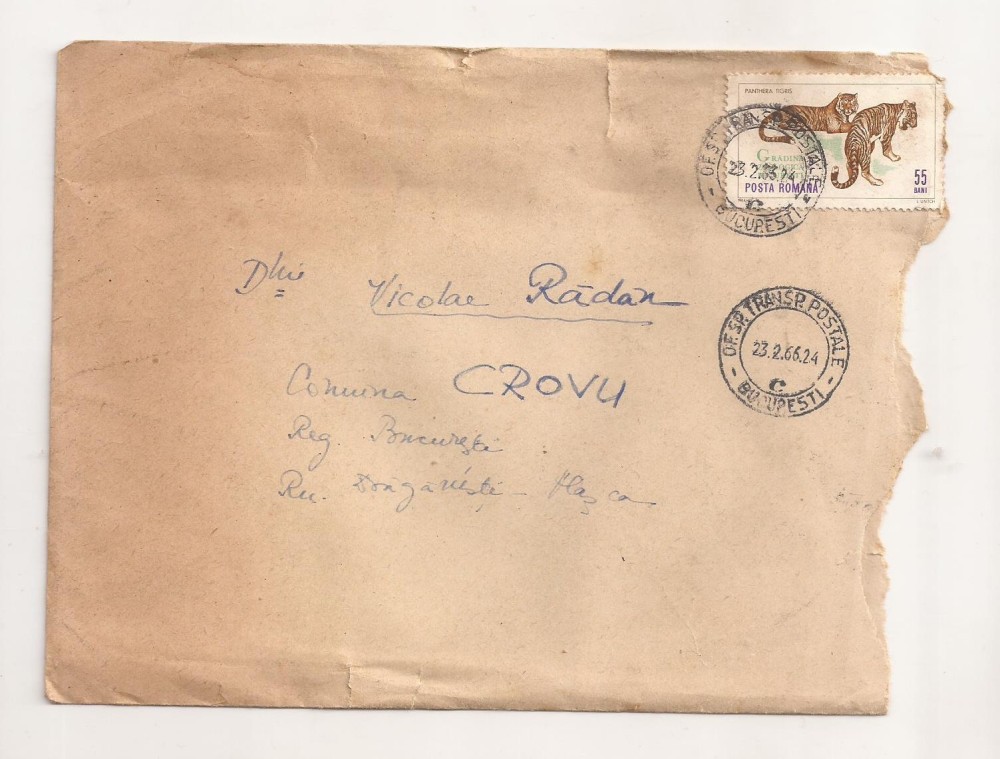 PANTHERA TIGRIS
GRĂDINA
POSTA ROMANA
55
BANI
OF. SP. TRANSP. POSTALE
23.2.66.24
C
BUCUREȘTI
Dlui Nicolae Rădan
OF. SP. TRANSP. POSTALE
23.2.66.24
C
BUCUREȘTI
Comuna CROVU
Reg. București
Rn. Drăgănești - Vlașca